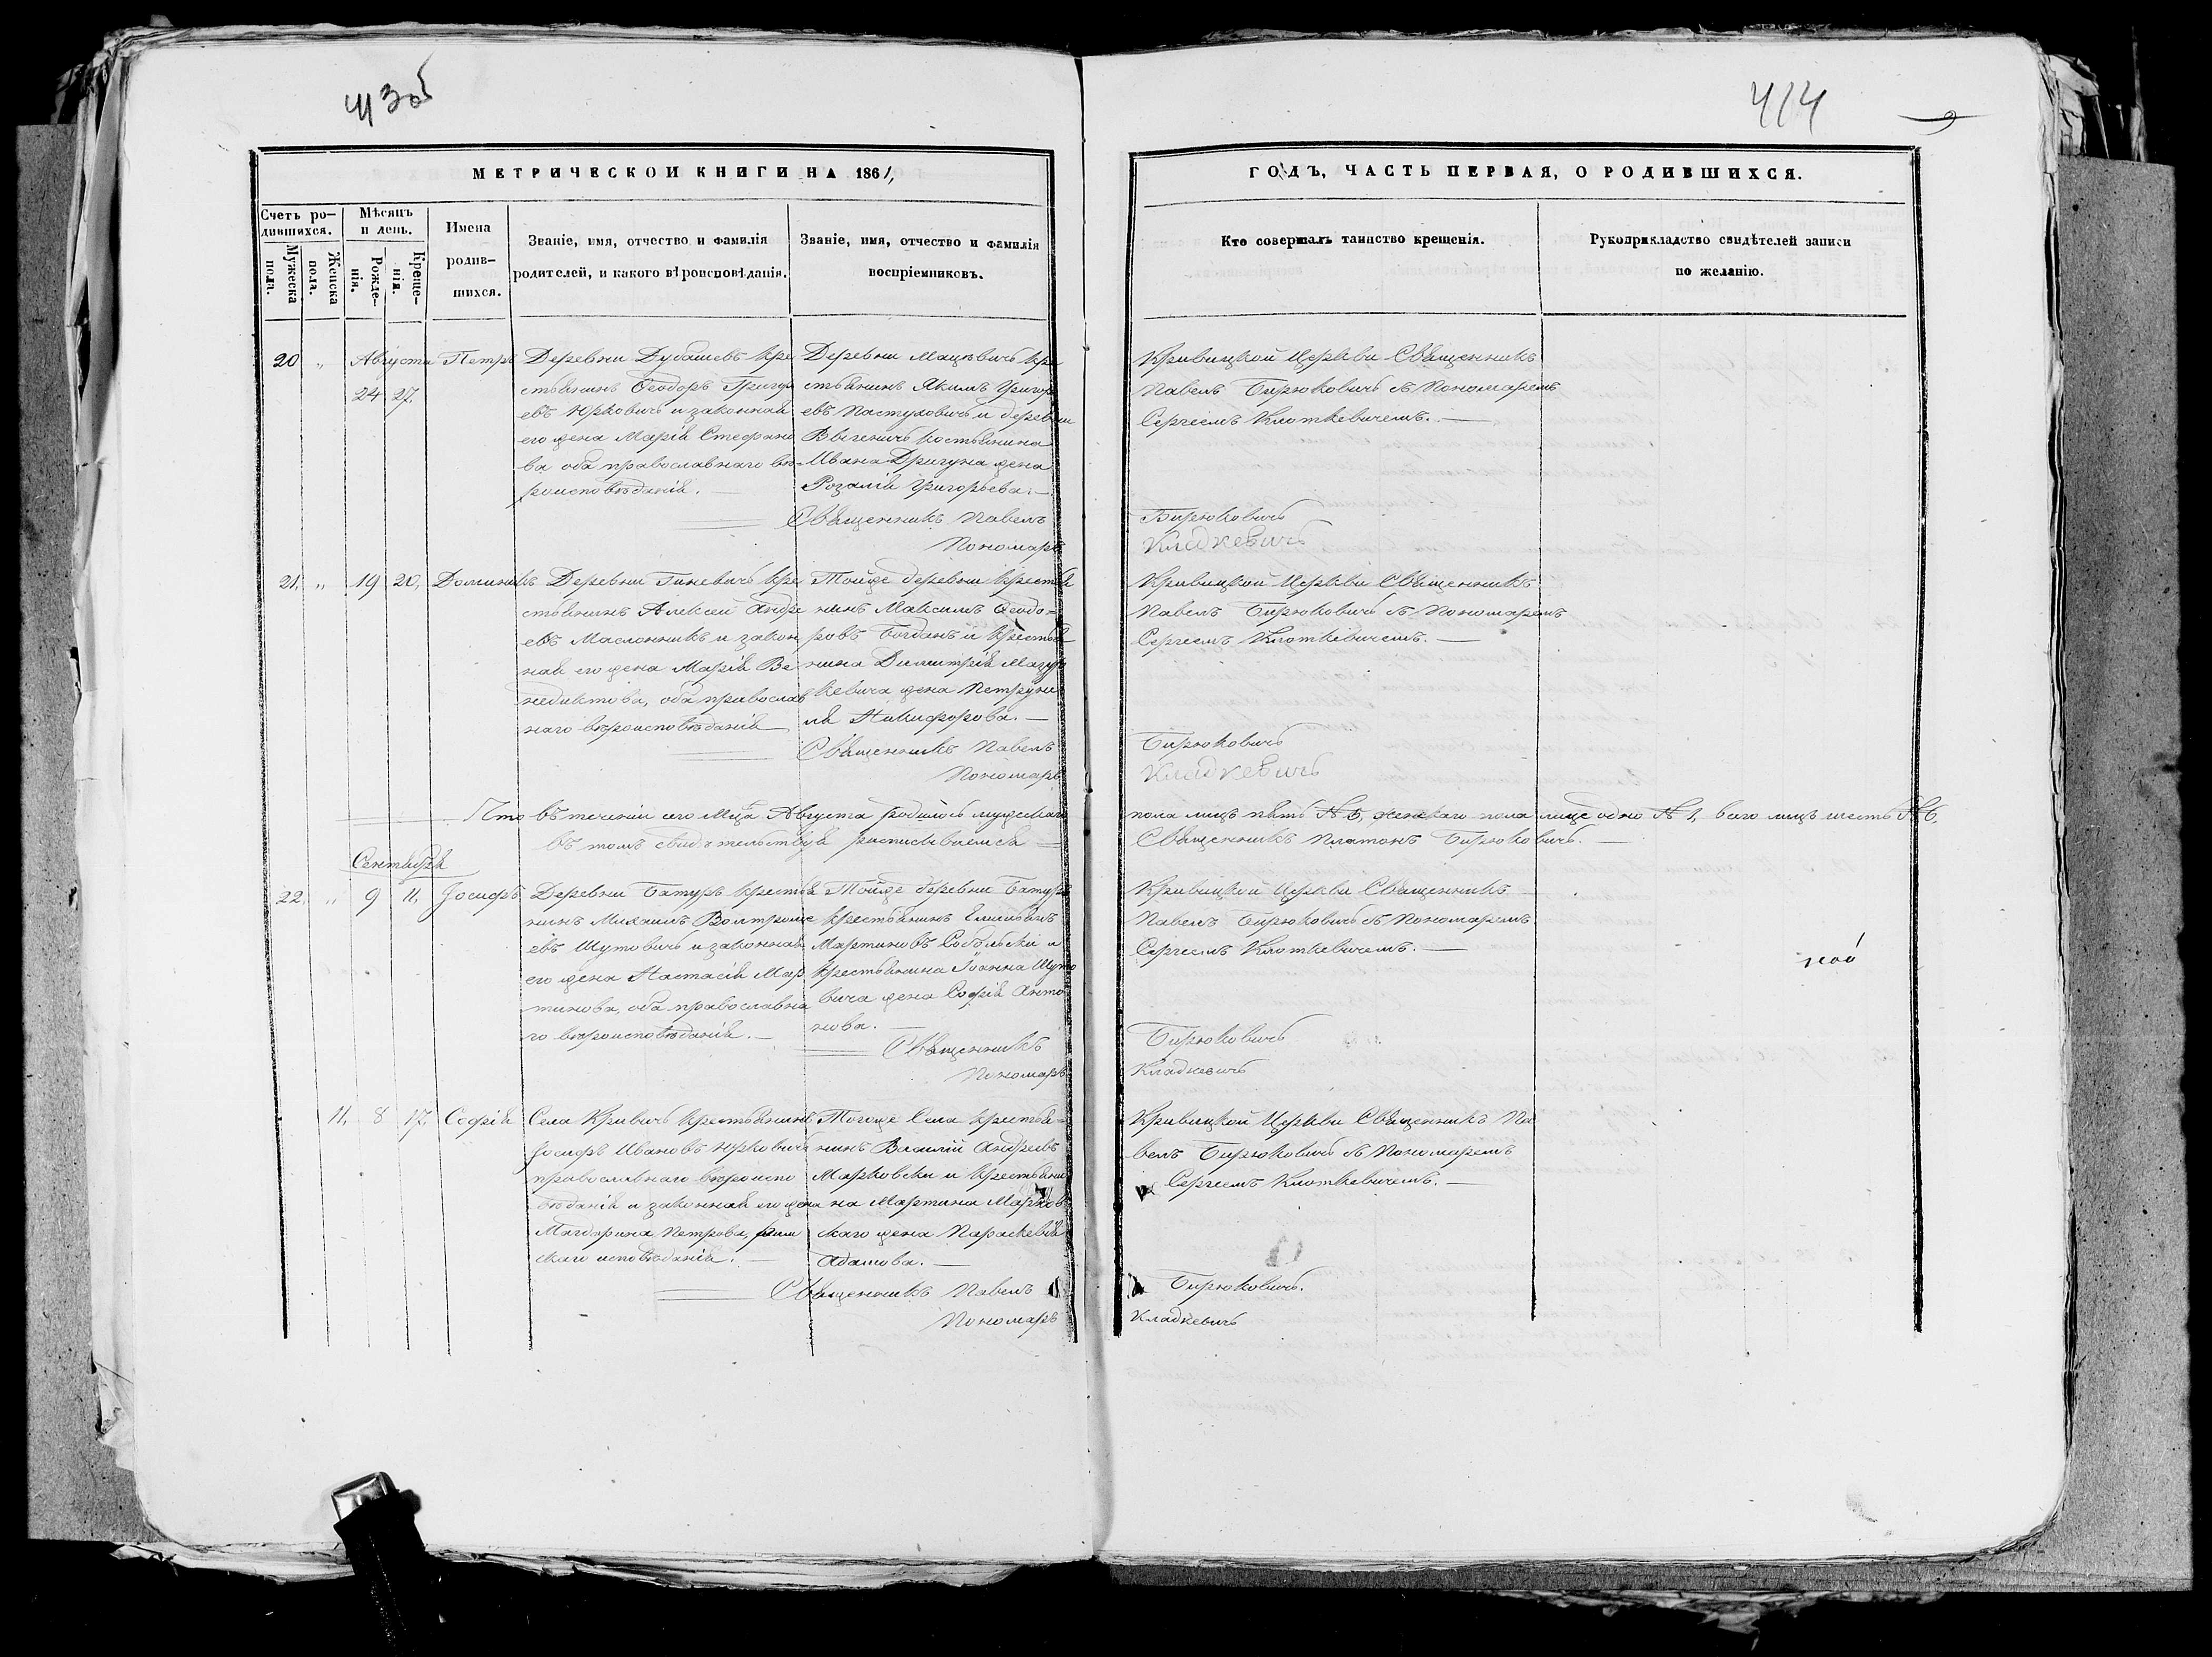 413 об
414
МЕТРИЧЕСКОЙ КНИГИ НА 1861,
ГОДЪ, ЧАСТЬ ПЕРВАЯ, О РОДИВШИХСЯ.
Счетъ ро-
дившихся.
Мужеска
пола.
Женска
пола.
Мѣсяцъ
и день.
Рожде-
нія.
Креще-
нія.
Имена
родив-
шихся.
Званіе, имя, отчество и фамилія
родителей, и какого вѣроисповѣданія.
Званіе, имя, отчество и фамилія
воспріемниковъ.
Кто совершалъ таинство крещенія.
Рукоприкладство свидѣтелей записи
по желанію.
20 „ Августа
24 27,
Петръ
Деревни Дубашевъ кре
стьянинъ Ѳеодоръ Григорь
евъ Юрковичъ и законная
его жена Марія Стефано
ва оба православнаго вѣ=
роисповѣданія. —
Деревни Мацѣвичъ кре
стьянинъ Якимъ Григорь
евъ Пастуховичъ и деревни
крестьянина
Ивана Дригуна жена
Розалія Григорьева. —
Священникъ Павелъ
Пономарь
Кривицкой Церкви Священникъ
Павелъ Бирюковичъ съ Пономаремъ
Сергеемъ Клоткевичемъ. —
Бирюковичъ
Кладкевичъ
21, „ 19 20,
Доминикъ
Деревни Гиневичъ кре
стьянинъ Алексей Андре
евъ Маслонникъ и закон
ная его жена Марія Ве
недиктова, оба православ
наго вѣроисповѣданія
Тойже деревни крестья
нинъ Максимъ Ѳеодо=
ровъ Богданъ и крестья
нина Димитрія Мазур
кевича жена Петруне
ля Никифорова. —
Священникъ Павелъ
Пономарь
Кривицкой Церкви Священникъ
Павелъ Бирюковичъ съ Пономаремъ
Сергеемъ Клоткевичемъ. —
Бирюковичъ
Кладкевичъ
Что въ теченіи сего Мца Августа родилось мужескаго
пола лицъ пять № 5, женскаго пола лице одно № 1, всего лицъ шесть № 6,
въ томъ свидѣтельствуя росписываемся =
Священникъ Платонъ Бирюковичъ. —
Сентября
22, „ 9 11,
Іосифъ
Деревни Батуръ крестья
нинъ Михаилъ Волтроме
евъ Шутовичъ и законная
его жена Настасія Мар
тинова, оба православна
го вѣроисповѣданія. —
Тойже деревни Батуръ
крестьянинъ
Мартиновъ Собольскій и
крестьянина Іоанна Шуто
вича жена Софія Анто
нова. —
Священникъ
Пономарь
Кривицкой Церкви Священникъ
Павелъ Бирюковичъ съ Пономаремъ
Сергеемъ Клоткевичемъ. —
Бирюковичъ
Кладкевичъ
11, 8 17,
Софія
Села Кривичъ крестьянинъ
Іосифъ Ивановъ Юрковичъ
православнаго вѣроиспо
вѣданія и законная его жена
Магдарина Петрова, рим
скаго исповѣданія. —
Тогоже Села крестья=
нинъ Василій Андреевъ
Марковски и крестьяни
на Мартина Марков
скаго жена Параскевія
Адамова. —
Священникъ Павелъ
Пономарь
Кривицкой Церкви Священникъ Па
велъ Бирюковичъ съ Пономаремъ
Сергеемъ Клоткевичемъ. —
Бирюковичъ.
Кладкевичъ